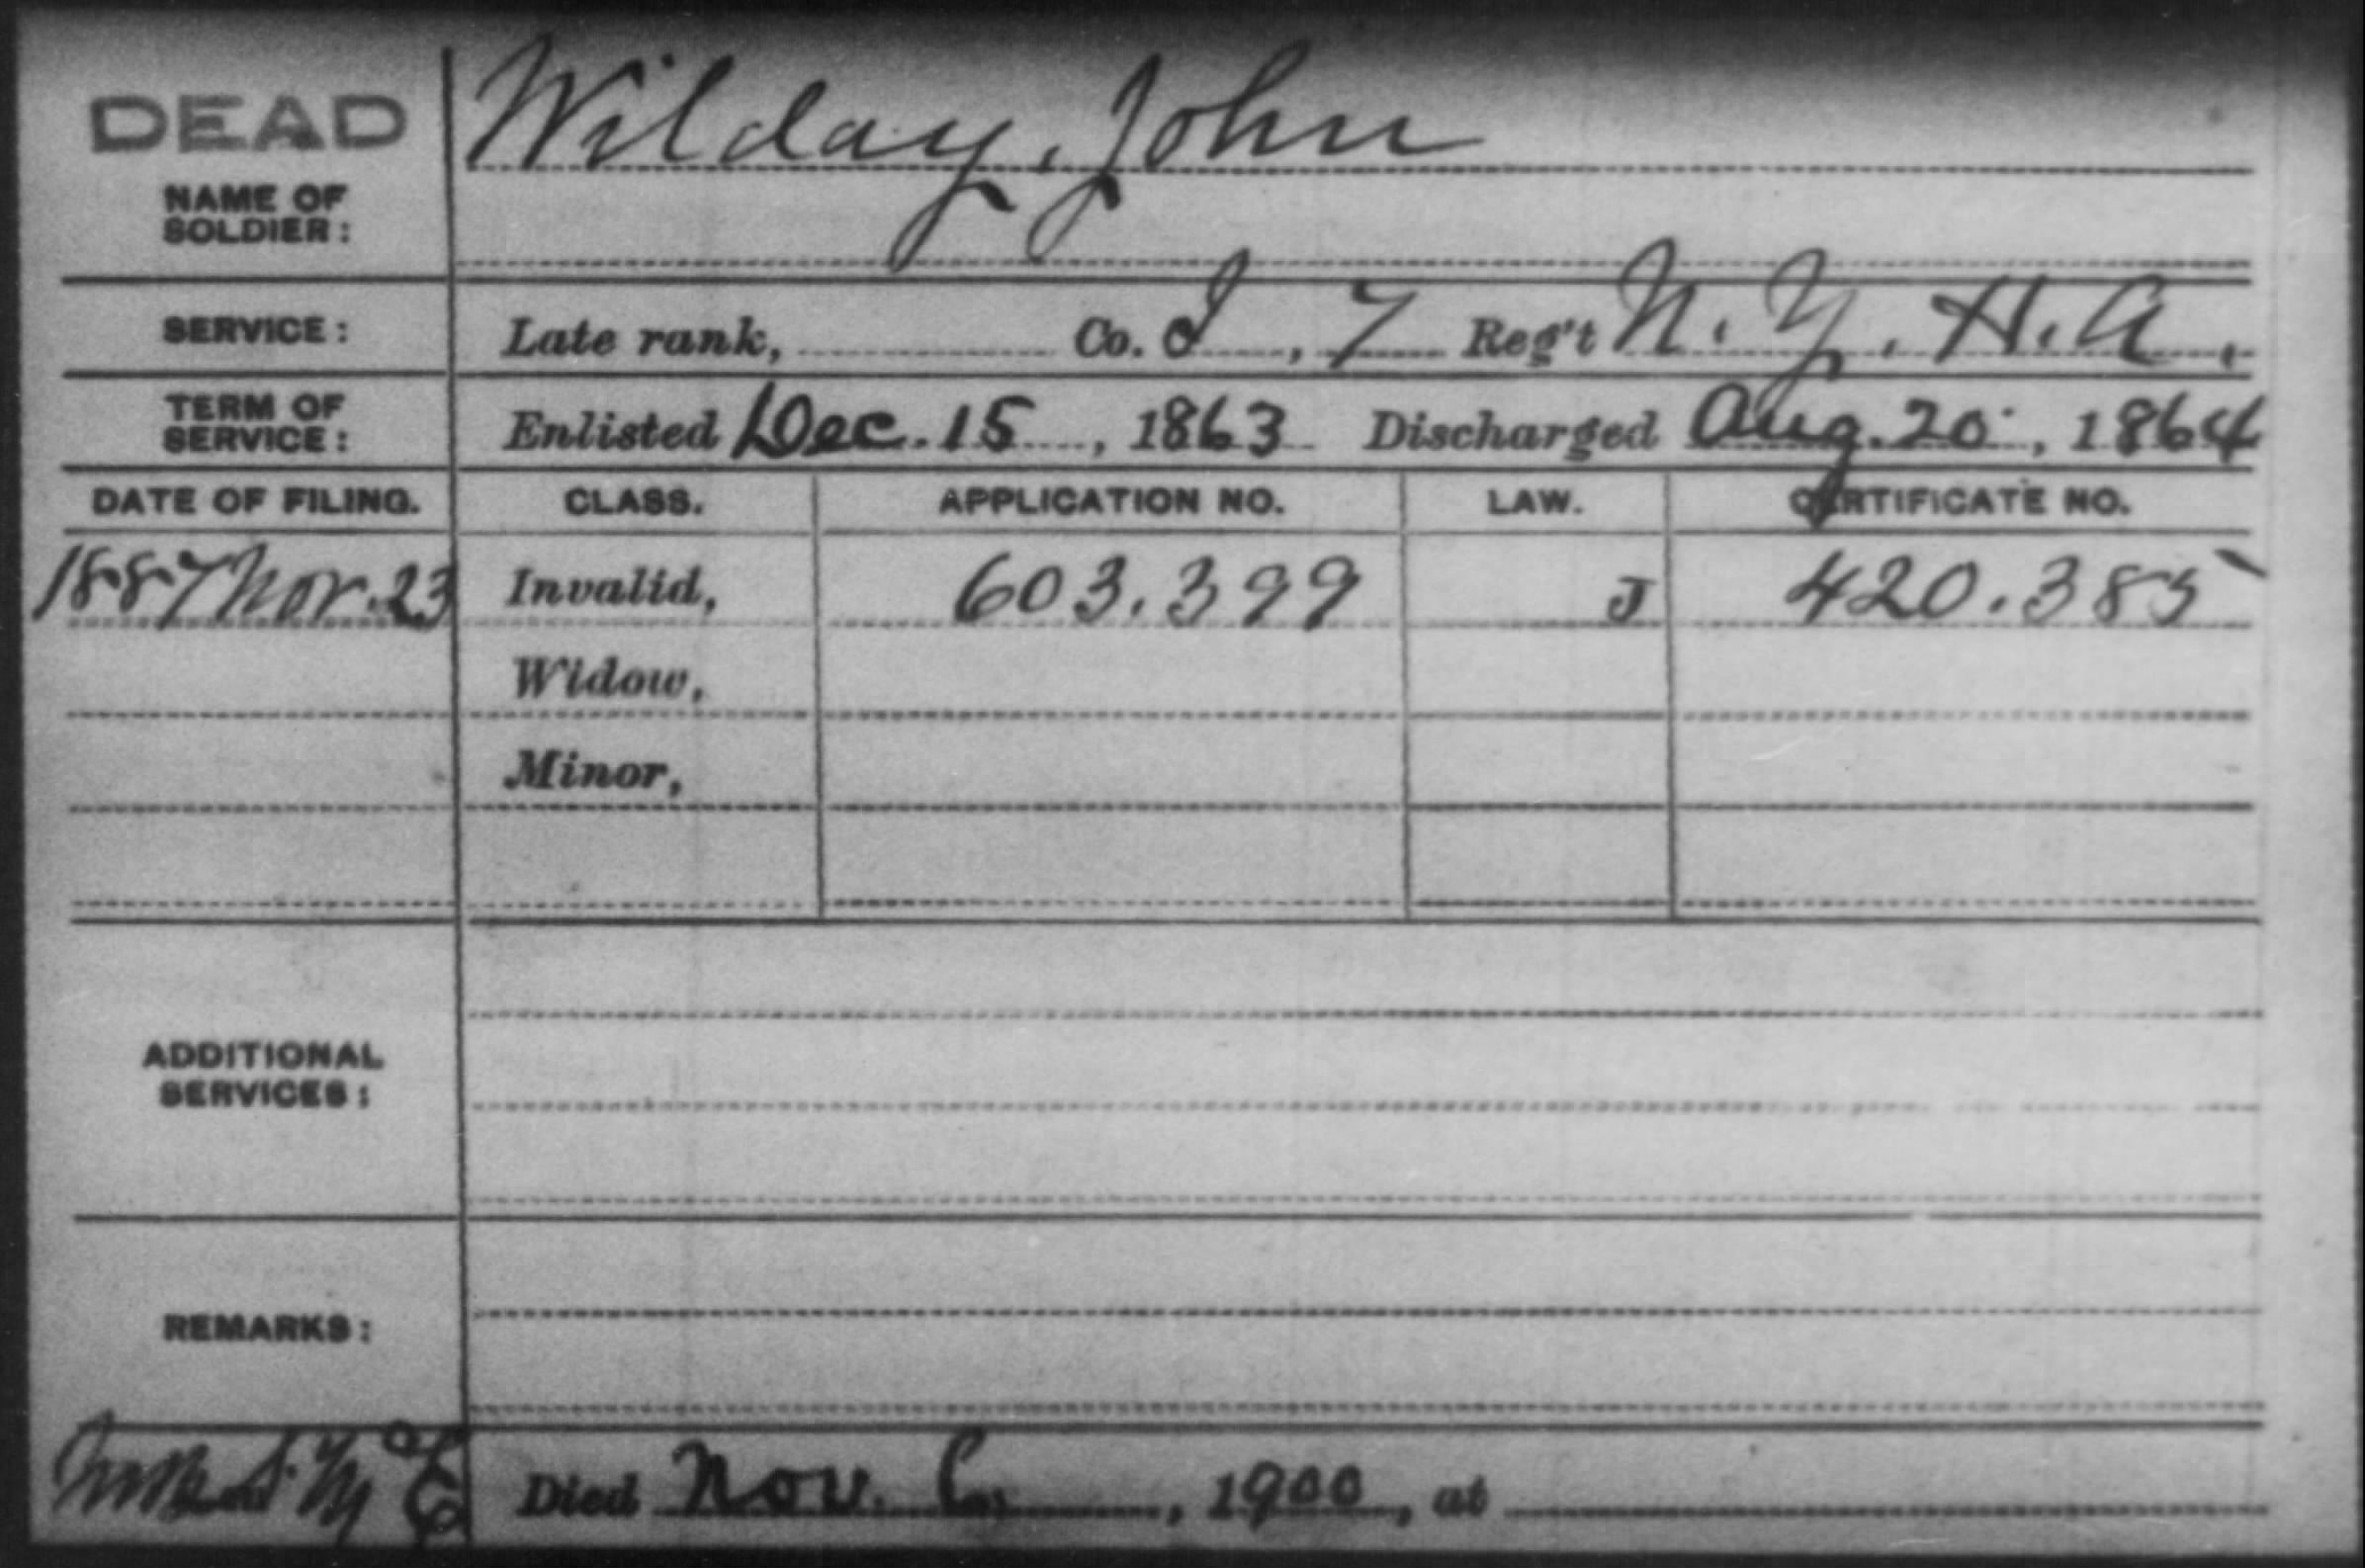 DEAD
Wilday, John
NAME OF
SOLDIER:
SERVICE: Late rank, Co. I, 7 Reg't N. Y. H. A.
TERM OF
SERVICE: Enlisted Dec. 15, 1863 Discharged Aug. 20, 1864
DATE OF FILING. CLASS. APPLICATION NO. LAW. CERTIFICATE NO.
1887 Nov. 23 Invalid, 603.399 J 420.385
Widow,
Minor,
ADDITIONAL
SERVICES:
REMARKS:
Died Nov. 6, 1900, at